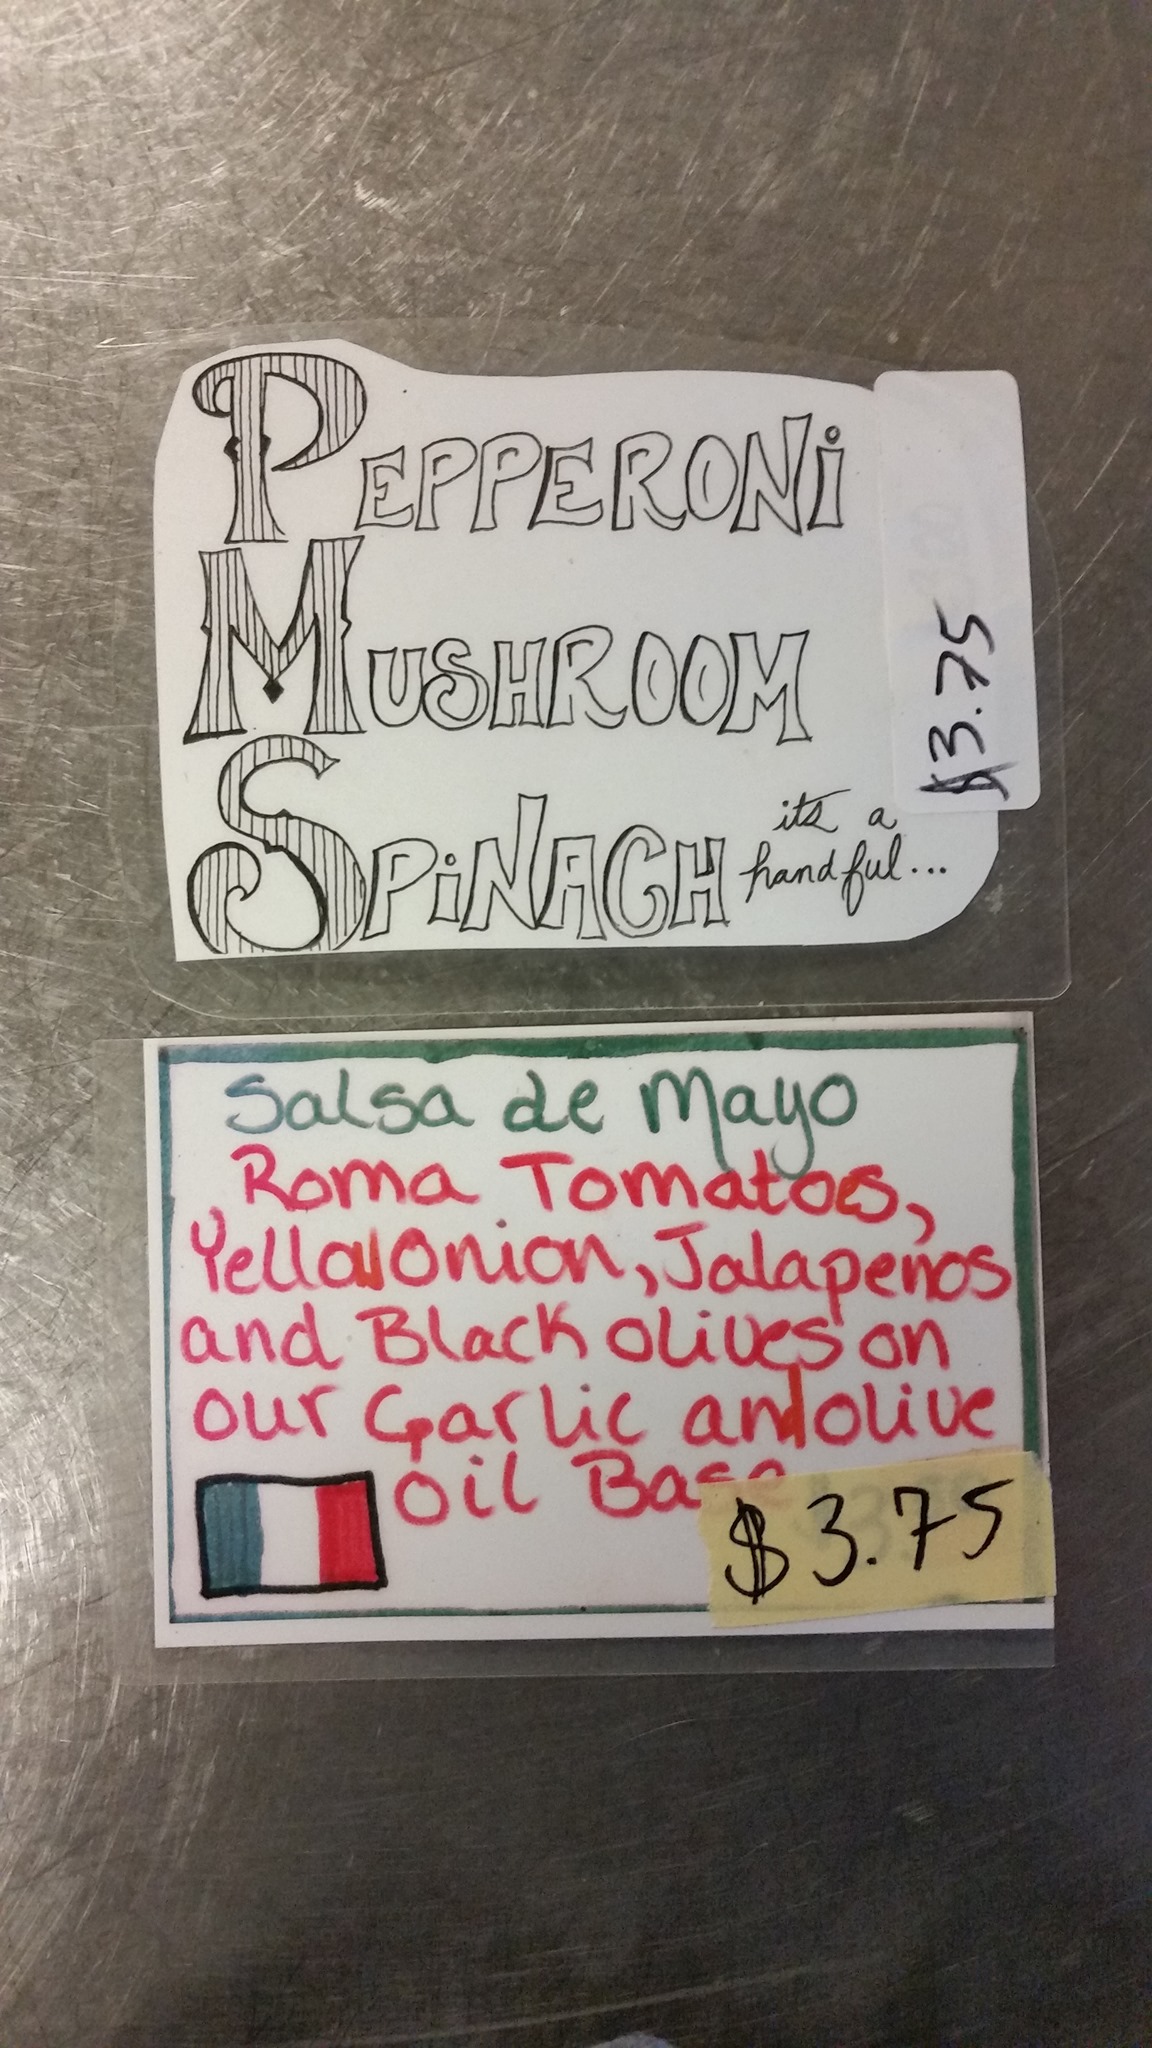 PEPPERONi
MUSHROOM
SPiNACH
its a
handful...
$3.75
Salsa de Mayo
Roma Tomatoes,
Yellow Onion, Jalapeños
and Black olives on
our Garlic and olive
oil Base
$3.75